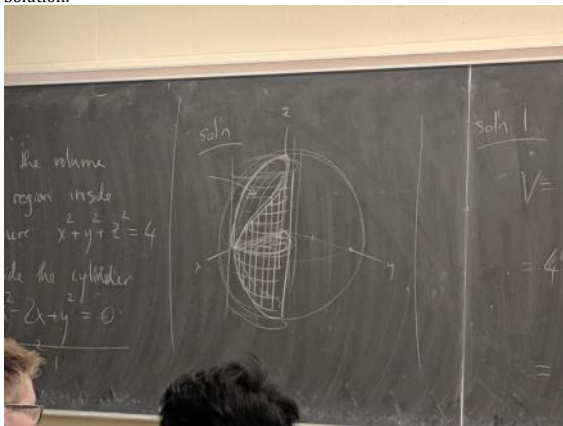 Solution:
the volume
region inside
x² + y² + z² = 4
the cylinder
- 2x + y² = 0
sol'n
z
x
y
sol'n 1
V =
= 4
=